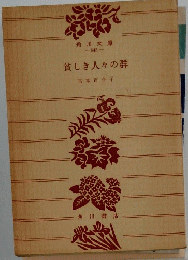 角川文庫
貧しき人々の群
宮本百合子
角川書店